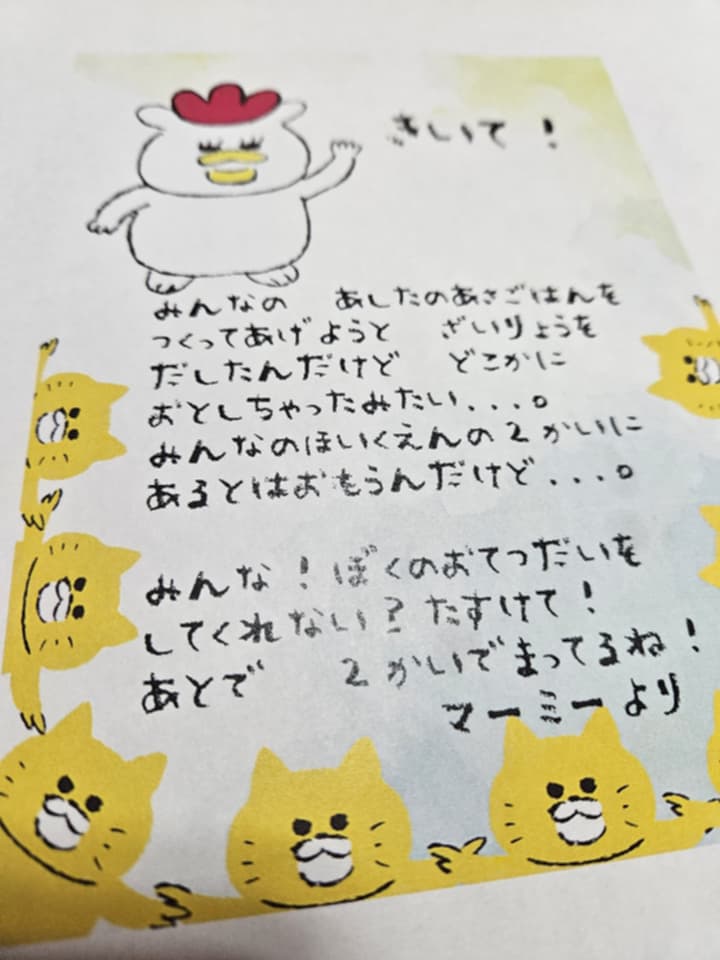 きいて！
みんなの　あしたのあさごはんを
つくってあげようと　ざいりょうを
だしたんだけど　どこかに
おとしちゃったみたい...。
みんなのほいくえんの2かいに
あるとはおもうんだけど...。
みんな！ぼくのおてつだいを
してくれない？たすけて！
あとで　2かいでまってるね！
マーミーより